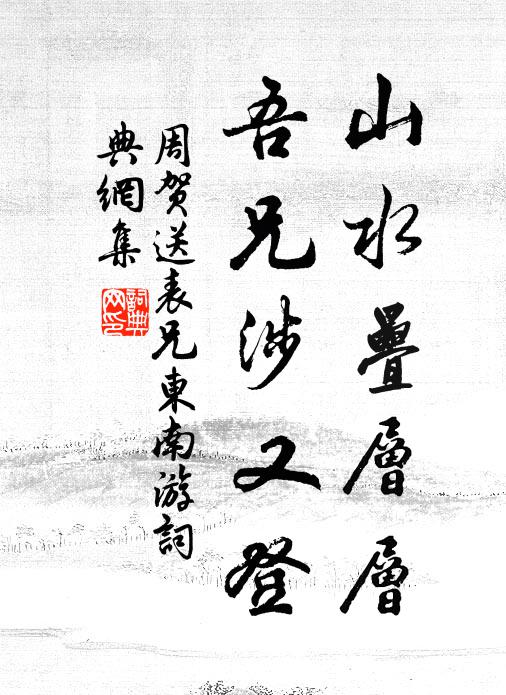 山水疊層層
吾兄涉又登
周賀送表兄東南游詞
典網集
詞典
网印